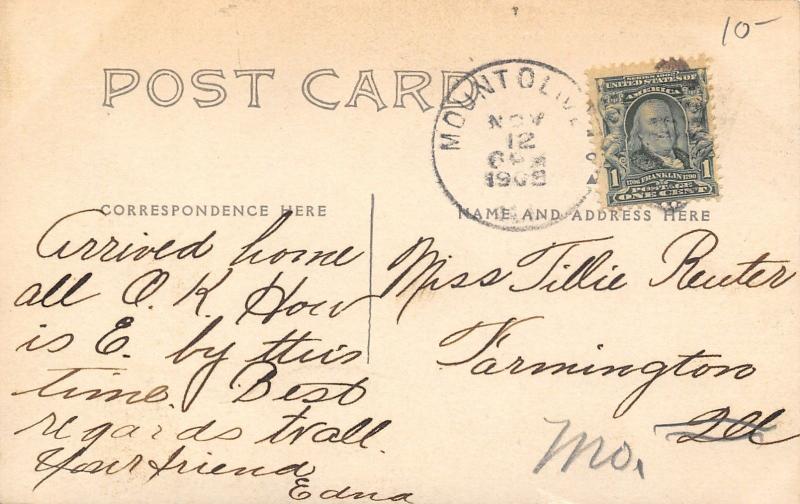 10-
POST CARD
MOUNT OLIVE
NOV
12
6 PM
1908
SERIES 1902
UNITED STATES OF
AMERICA
1 1
1706 FRANKLIN 1790
POSTAGE
ONE CENT
CORRESPONDENCE HERE
NAME AND ADDRESS HERE
Arrived home
all O.K. How
is E. by this
time. Best
regards to all.
Your friend
Edna
Miss Tillie Reuter
Farmington
Ill
Mo.